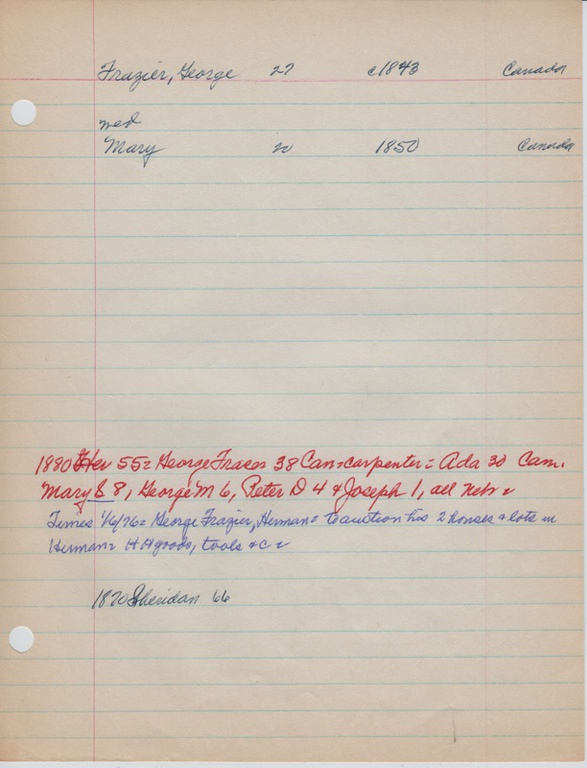 Frazier, George 27 c1843 Canada
wed
Mary 20 1850 Canada
1880 55= George Fraces 38 Can=carpenter= Ada 30 Can.
Mary E 8, George M 6, Peter D 4 & Joseph 1, all Nebr=
Times 1/6/76= George Frazier, Herman= to auction his 2 houses & lots in
Herman= HHgoods, tools &c=
1870 Sheridan 66